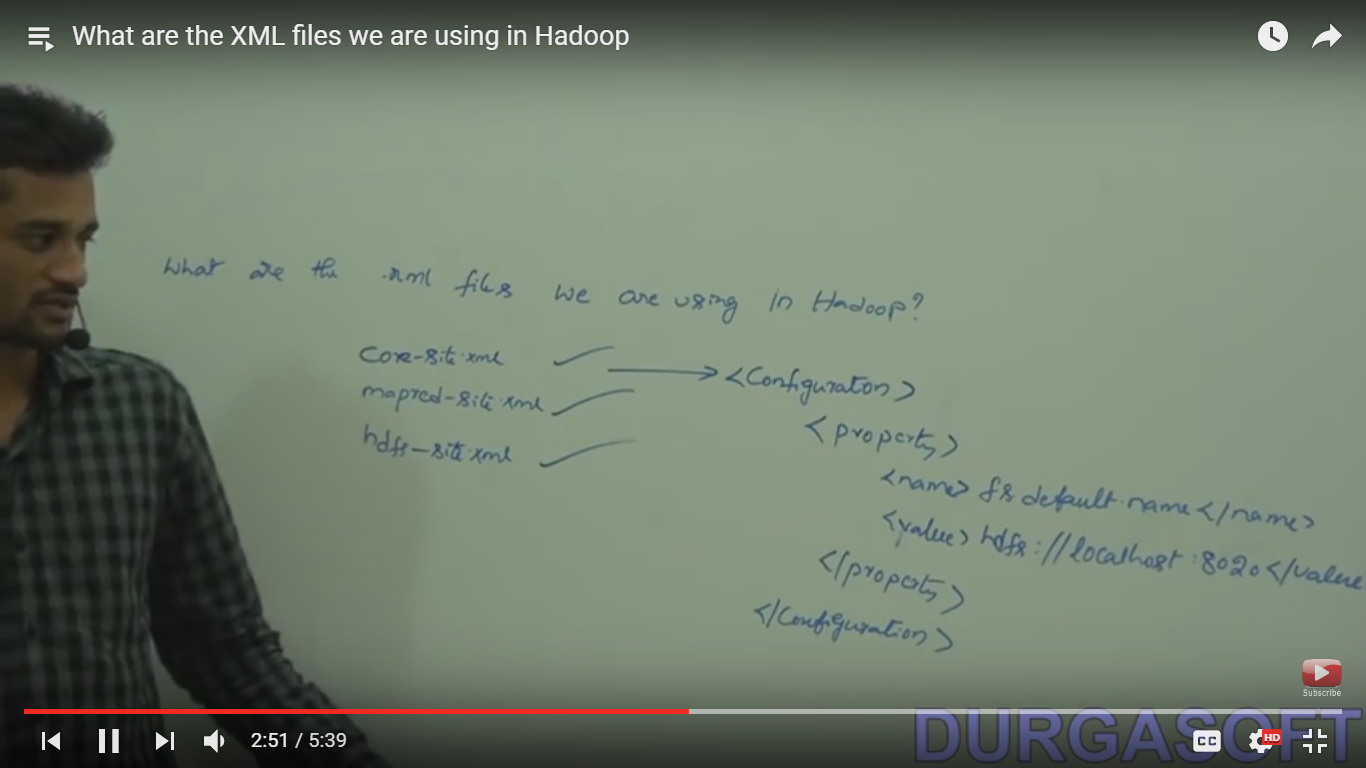 What are the XML files we are using in Hadoop
What are the .xml files we are using in Hadoop?
Core-site.xml
mapred-site.xml
hdfs-site.xml
<Configuration>
<property>
<name> fs.default.name</name>
<value> hdfs://localhost:8020</value
</property>
</Configuration>
Subscribe
2:51 / 5:39
CC
HD
DURGASOFT